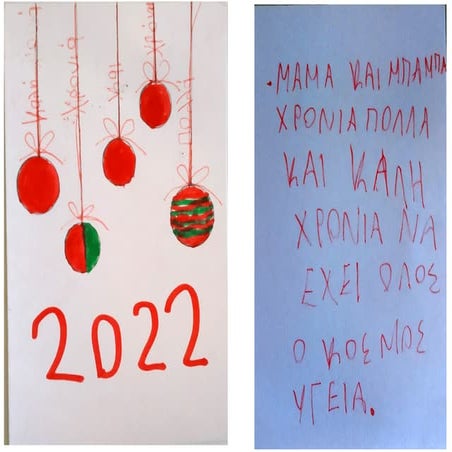 2022
.ΜΑΜΑ ΚΑΙ ΜΠΑΜΠΑ
ΧΡΟΝΙΑ ΠΟΛΛΑ
ΚΑΙ ΚΑΛΗ
ΧΡΟΝΙΑ ΝΑ
ΕΧΕΙ ΟΛΟΣ
Ο ΚΟΣΜΟΣ
ΥΓΕΙΑ.